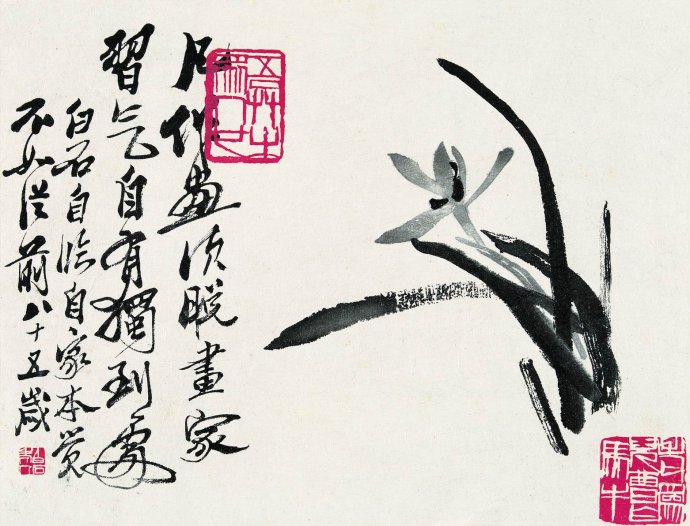 凡作画须脱畫家
習气自有獨到處
白石自临自家本觉
不如從前八十五歲